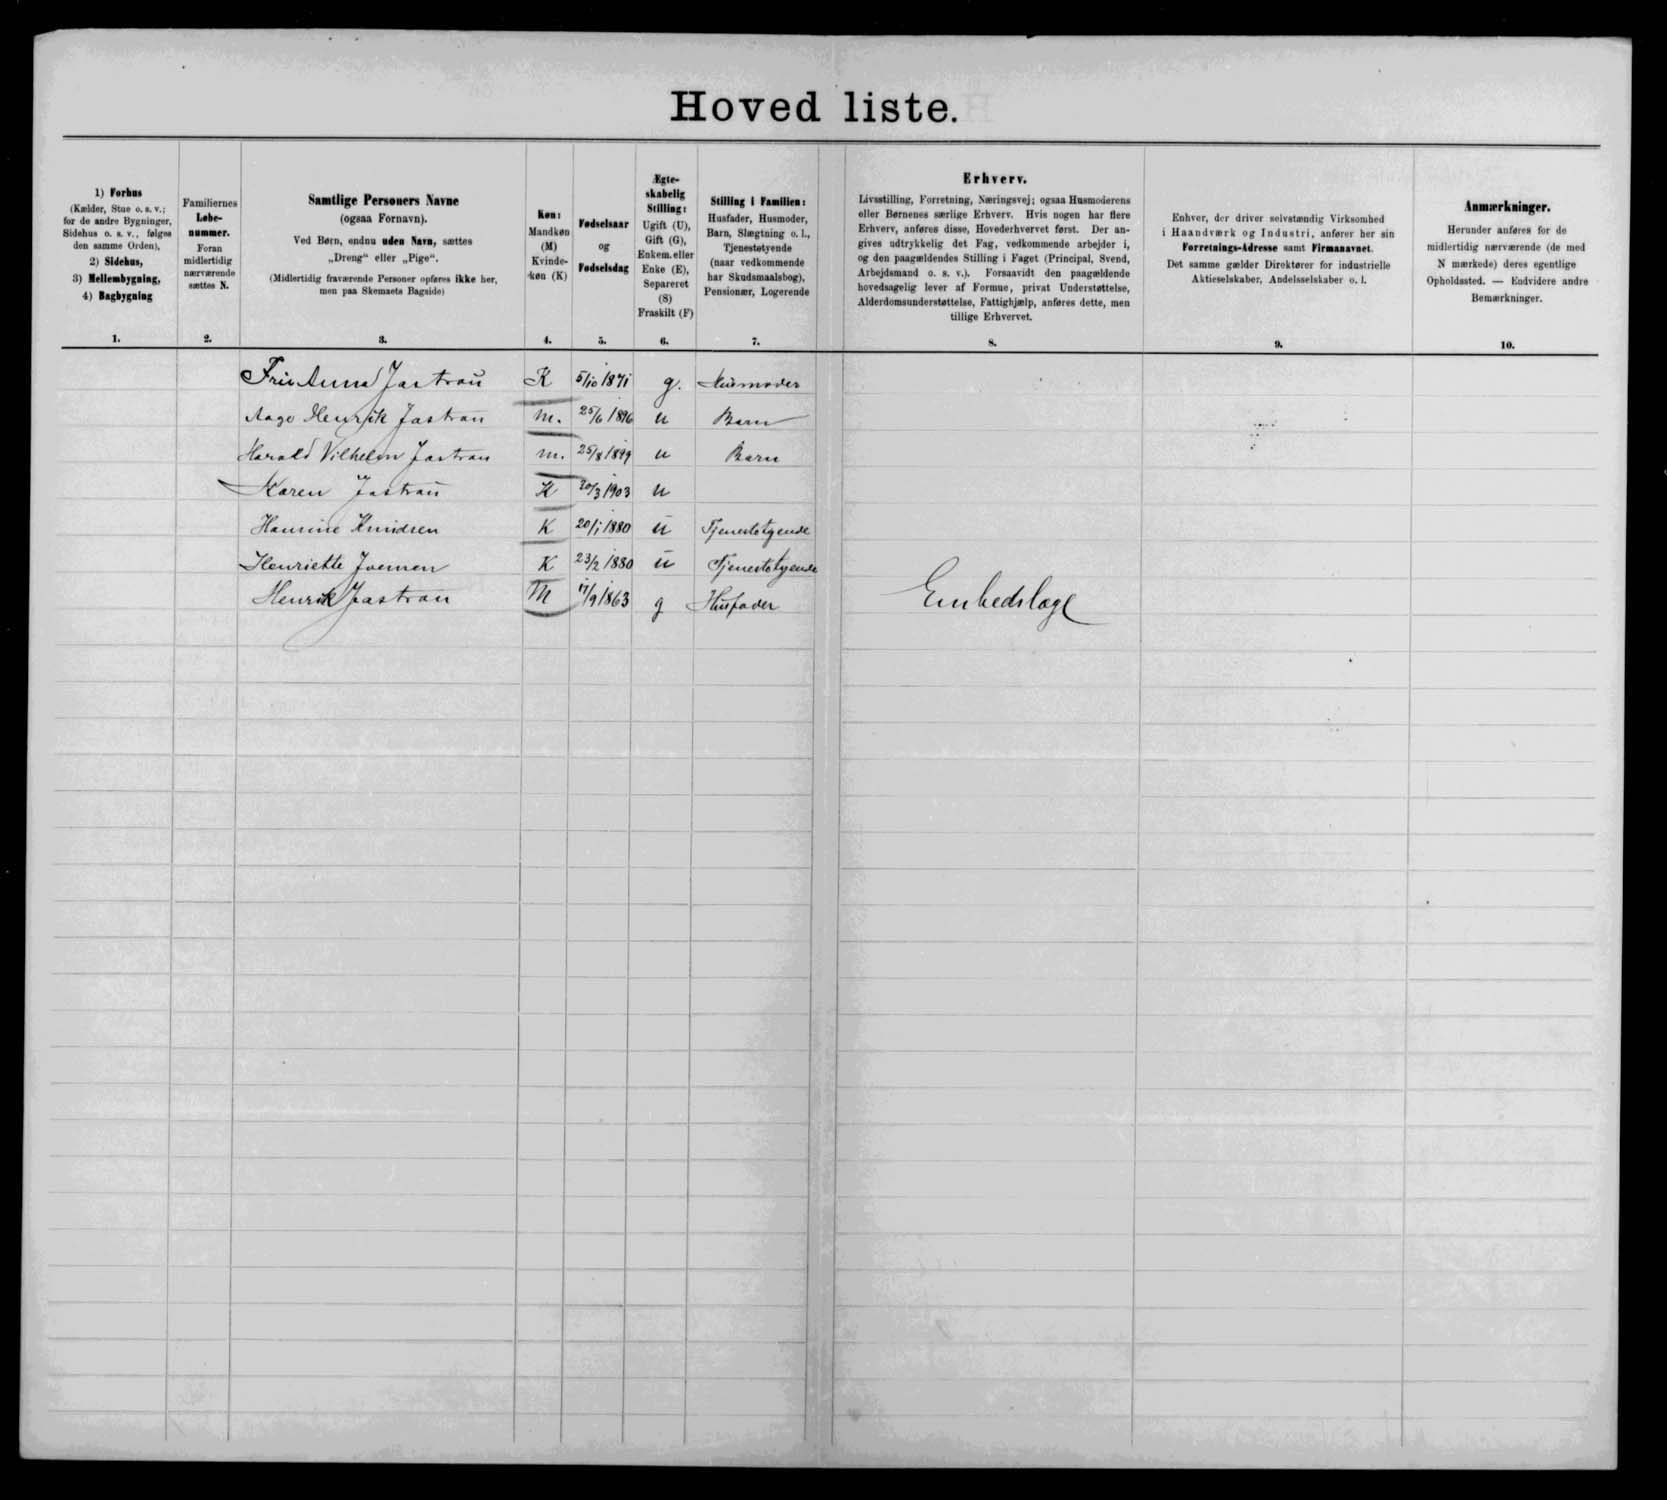 Hoved liste.
1) Forhus
(Kælder, Stue o. s. v.;
for de andre Bygninger,
Sidehus o. s. v., følges
den samme Orden),
2) Sidehus,
3) Mellembygning,
4) Bagbygning
1.
Familiernes
Løbe-
nummer.
Foran
midlertidig
nærværende
sættes N.
2.
Samtlige Personers Navne
(ogsaa Fornavn).
Ved Børn, endnu uden Navn, sættes
„Dreng“ eller „Pige“.
(Midlertidig fraværende Personer opføres ikke her,
men paa Skemaets Bagside)
3.
Køn:
Mandkøn
(M)
Kvinde-
køn (K)
4.
Fødselsaar
og
Fødselsdag
5.
Ægte-
skabelig
Stilling:
Ugift (U),
Gift (G),
Enkem. eller
Enke (E),
Separeret
(S)
Fraskilt (F)
6.
Stilling i Familien:
Husfader, Husmoder,
Barn, Slægtning o. l.,
Tjenestetyende
(naar vedkommende
har Skudsmaalsbog),
Pensionær, Logerende
7.
Erhverv.
Livsstilling, Forretning, Næringsvej; ogsaa Husmoderens
eller Børnenes særlige Erhverv. Hvis nogen har flere
Erhverv, anføres disse, Hovederhvervet først. Der an-
gives udtrykkelig det Fag, vedkommende arbejder i,
og den paagældendes Stilling i Faget (Principal, Svend,
Arbejdsmand o. s. v.). Forsaavidt den paagældende
hovedsagelig lever af Formue, privat Understøttelse,
Alderdomsunderstøttelse, Fattighjælp, anføres dette, men
tillige Erhvervet.
8.
Enhver, der driver selvstændig Virksomhed
i Haandværk og Industri, anfører her sin
Forretnings-Adresse samt Firmanavnet.
Det samme gælder Direktører for industrielle
Aktieselskaber, Andelsselskaber o. l.
9.
Anmærkninger.
Herunder anføres for de
midlertidig nærværende (de med
N mærkede) deres egentlige
Opholdssted. — Endvidere andre
Bemærkninger.
10.
Anna Jastrau K 5/10 1871 g. Husmoder
Aage Henrik Jastrau M. 25/6 1896 u Barn
Harald Vilhelm Jastrau m. 25/8 1899 u Barn
Karen Jastrau K 30/3 1903 u
Hansine Knudsen K 20/1 1880 u Tjenestetyende
Henriette K 23/2 1880 u Tjenestetyende
Henrik Jastrau M /9 1863 g Husfader Embedslæge